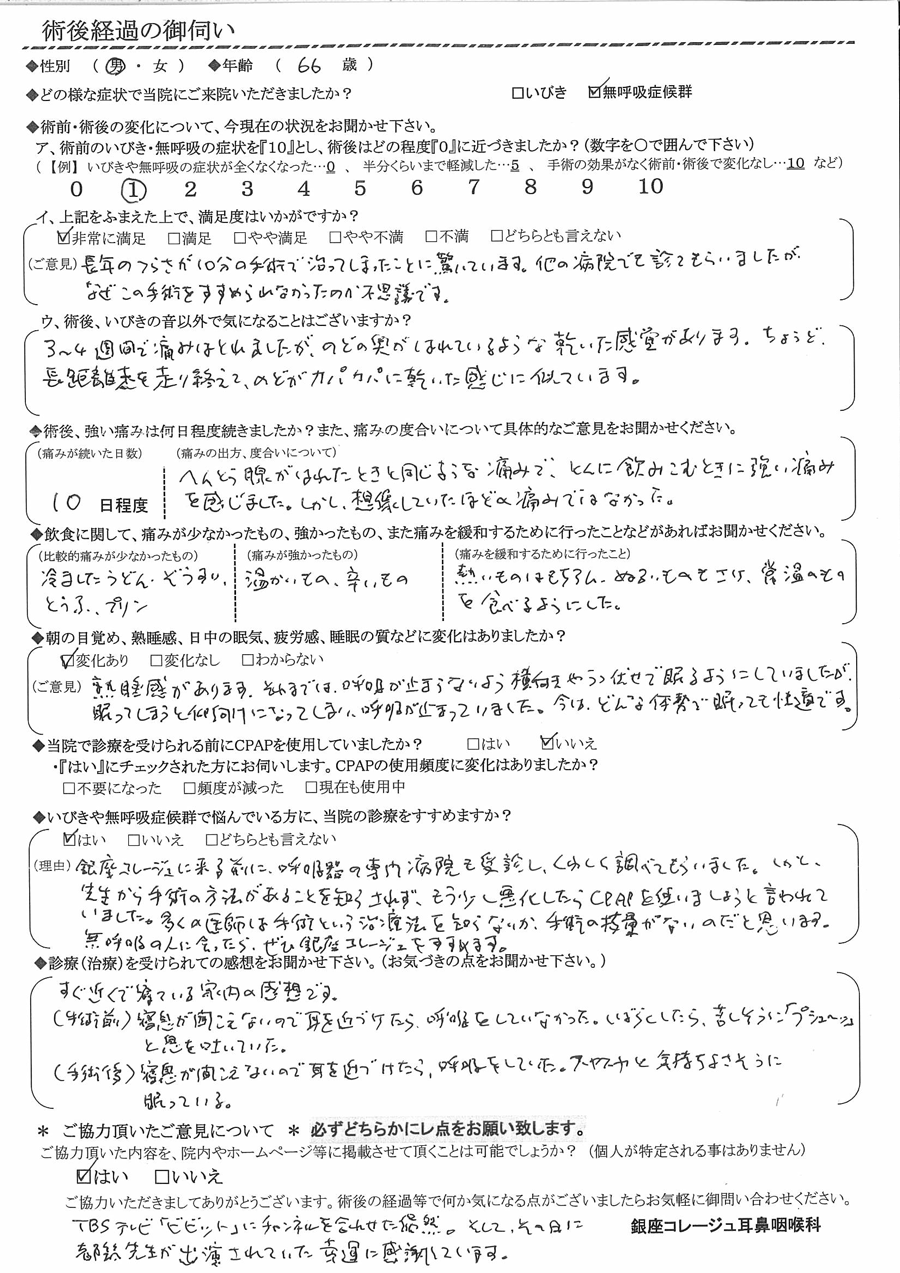 術後経過の御伺い
◆性別 ( 男 ・ 女 ) ◆年齢 ( 66 歳 )
◆どの様な症状で当院にご来院いただきましたか? □いびき ☑無呼吸症候群
◆術前・術後の変化について、今現在の状況をお聞かせ下さい。
ア、術前のいびき・無呼吸の症状を『10』とし、術後はどの程度『0』に近づきましたか?(数字を○で囲んで下さい)
(【例】いびきや無呼吸の症状が全くなくなった…0 、 半分くらいまで軽減した…5 、 手術の効果がなく術前・術後で変化なし…10 など)
0 ① 2 3 4 5 6 7 8 9 10
イ、上記をふまえた上で、満足度はいかがですか?
☑非常に満足 □満足 □やや満足 □やや不満 □不満 □どちらとも言えない
(ご意見) 長年のつらさが10分の手術で治ってしまったことに驚いています。他の病院でも診てもらいましたが
なぜこの手術をすすめられなかったのか不思議です。
ウ、術後、いびきの音以外で気になることはございますか?
3~4週間で痛みはとれましたが、のどの奥がはれているような乾いた感覚があります。ちょうど、
長距離走を走り終えて、のどがカパカパに乾いた感じに似ています。
◆術後、強い痛みは何日程度続きましたか?また、痛みの度合いについて具体的なご意見をお聞かせください。
(痛みが続いた日数) (痛みの出方、度合いについて)
へんとう腺がはれたときと同じような痛みで、とくに飲みこむときに強い痛み
10 日程度 を感じました。しかし、想像していたほどの痛みではなかった。
◆飲食に関して、痛みが少なかったもの、強かったもの、また痛みを緩和するために行ったことなどがあればお聞かせください。
(比較的痛みが少なかったもの) (痛みが強かったもの) (痛みを緩和するために行ったこと)
冷ましたうどん・ぞうすい、 温かいもの、辛いもの 熱いものはもちろん、ぬるいものもさけ、常温のもの
とうふ、プリン を食べるようにした。
◆朝の目覚め、熟睡感、日中の眠気、疲労感、睡眠の質などに変化はありましたか?
☑変化あり □変化なし □わからない
(ご意見) 熟睡感があります。それまでは、呼吸が止まらないよう横向きやうつ伏せで眠るようにしていましたが、
眠ってしまうと仰向けになってしまい、呼吸が止まっていました。今は、どんな体勢で眠っても快適です。
◆当院で診療を受けられる前にCPAPを使用していましたか? □はい ☑いいえ
・『はい』にチェックされた方にお伺いします。CPAPの使用頻度に変化はありましたか?
□不要になった □頻度が減った □現在も使用中
◆いびきや無呼吸症候群で悩んでいる方に、当院の診療をすすめますか?
☑はい □いいえ □どちらとも言えない
(理由) 銀座コレージュに来る前に、呼吸器の専門病院も受診し、くわしく調べてもらいました。しかし、
先生から手術の方法があることを知らされず、もう少し悪化したらCPAPを使いましょうと言われて
いました。多くの医師は手術という治療法を知らないか、手術の技量がないのだと思います。
無呼吸の人に会ったら、ぜひ銀座コレージュをすすめます。
◆診療(治療)を受けられての感想をお聞かせ下さい。(お気づきの点をお聞かせ下さい。)
すぐ近くで寝ている家内の感想です。
(手術前) 寝息が聞こえないので耳を近づけたら、呼吸をしていなかった。しばらくしたら、苦しそうに「プシューッ」
と息を吐いていた。
(手術後) 寝息が聞こえないので耳を近づけたら、呼吸をしていた。スヤスヤと気持ちよさそうに
眠っている。
* ご協力頂いたご意見について * 必ずどちらかにレ点をお願い致します。
ご協力頂いた内容を、院内やホームページ等に掲載させて頂くことは可能でしょうか? (個人が特定される事はありません)
☑はい □いいえ
ご協力いただきましてありがとうございます。術後の経過等で何か気になる点がございましたらお気軽に御問い合わせください。
TBSテレビ「ビビット」にチャンネルを合わせた偶然。そして、その日に 銀座コレージュ耳鼻咽喉科
先生が出演されていた幸運に感謝しています。